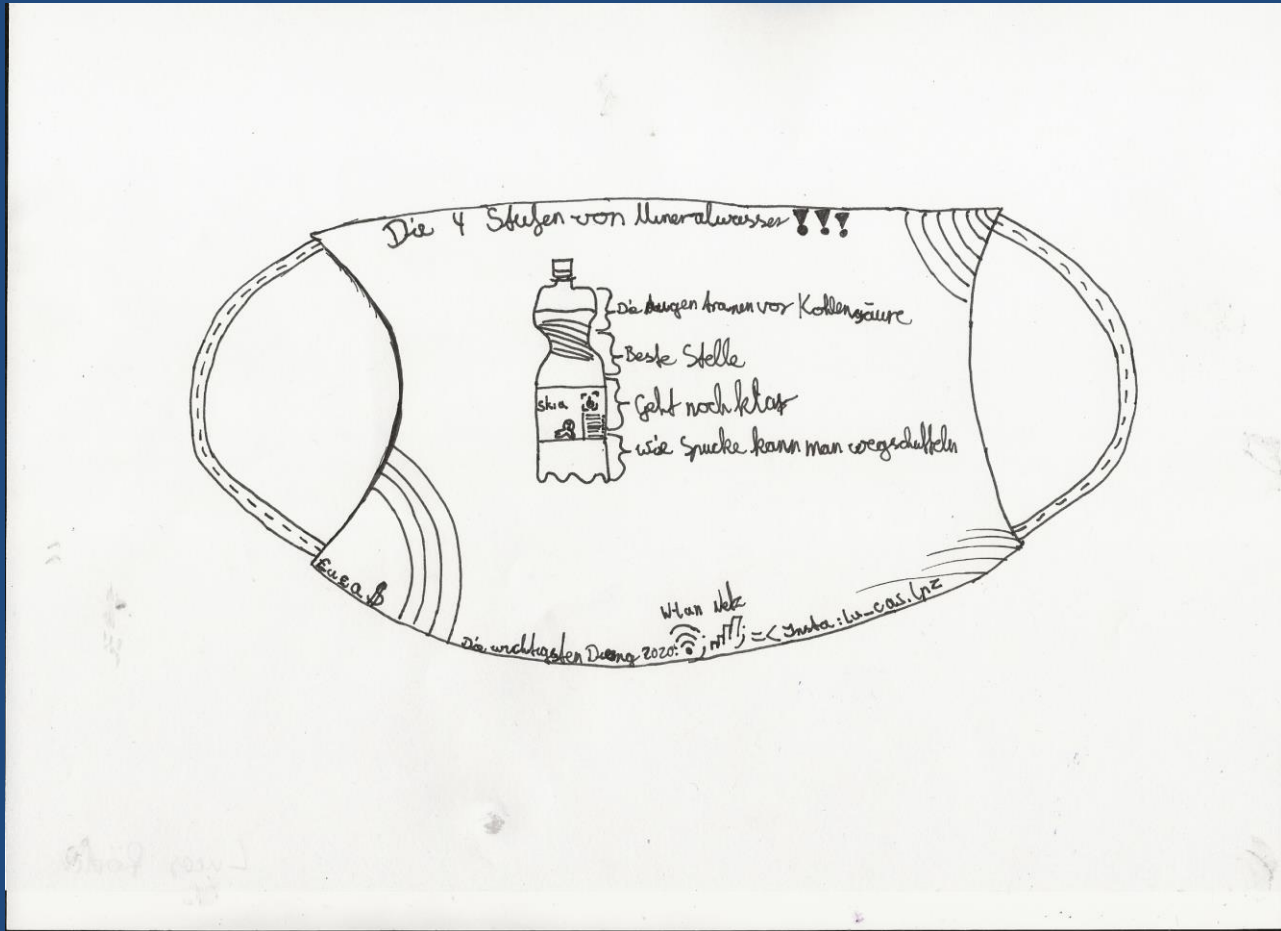 Die 4 Stufen von Mineralwasser !!!
Die Augen tränen vor Kohlensäure
Beste Stelle
Geht noch klar
wie Spucke kann man wegschütteln
skia
W-lan Netz
Die wichtigsten 2020:
=< Insta: lu_cas.lpz